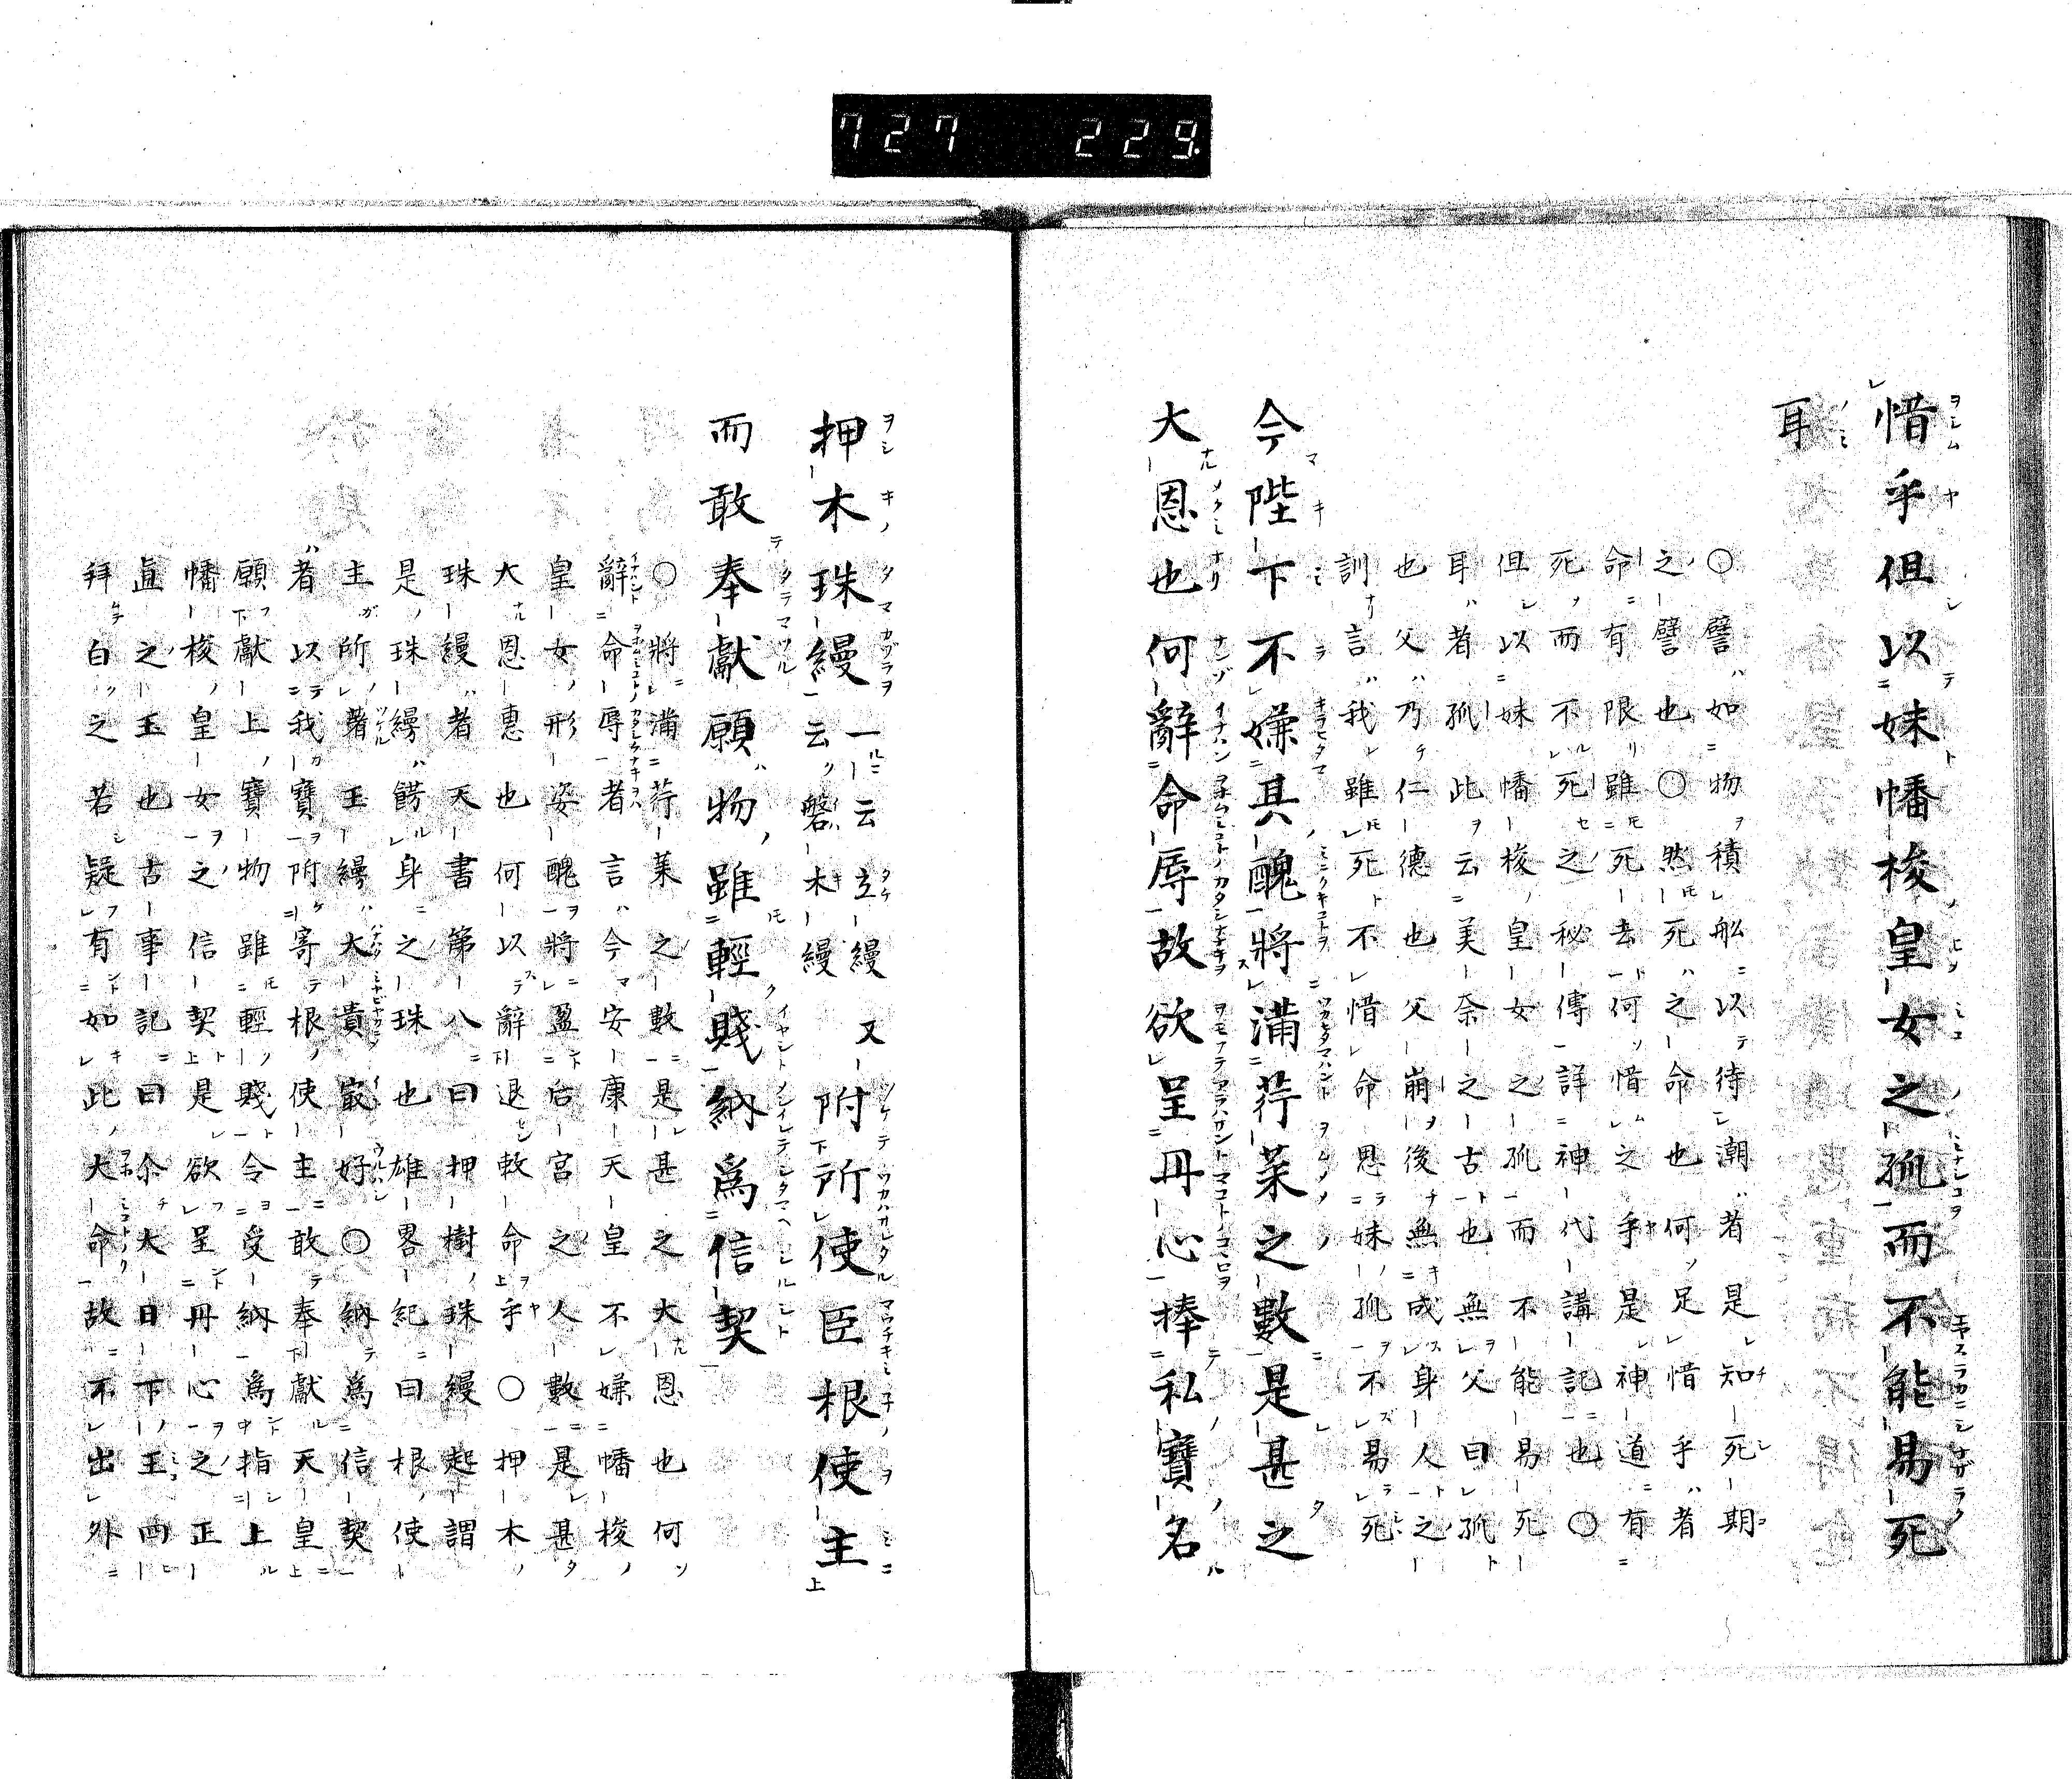 727 229.
惜乎但以妹幡梭皇女之孤而不能易死
耳
○譬如物積舩以待潮者是知死期
之譬也○然死之命也何足惜乎者
命有限雖死去何惜之乎是神道有
死而不死之秘傳詳神代講記也○
但以妹幡梭皇女之孤而不能易死
耳者孤此云美奈之古也無父曰孤
也父乃仁德也父崩後無成身人之
訓言我雖死不惜命思妹孤不易死
今陛下不嫌其醜將滿荇菜之數是甚之
大恩也何辭命辱故欲呈丹心捧私寶名
押木珠縵一云立縵又云磐木縵附所使臣根使主
而敢奉獻願物雖輕賤納爲信契
○將滿荇菜之數是甚之大恩也何
辭命辱者言今安康天皇不嫌幡梭
皇女形姿醜將盈后宮之人數是甚
大恩惠也何以辭退敕命乎○押木
珠縵者天書第八曰押樹珠縵起謂
是珠縵餝身之珠也雄畧紀曰根使
主所著玉縵大貴㝡好○納爲信契
者以我寶附寄根使主敢奉獻天皇
願獻上寶物雖輕賤令受納爲指上
幡梭皇女之信契是欲呈丹心之正
直之玉也古事記曰尒大日下王四
拜白之若疑有如此大命故不出外